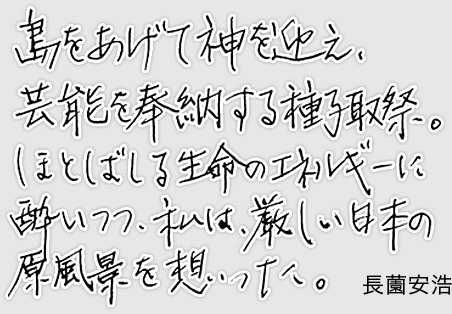 島をあげて神を迎え、
芸能を奉納する種子取祭。
ほとばしる生命のエネルギーに
酔いつつ、私は、厳しい日本の
原風景を想いった。
長薗安浩